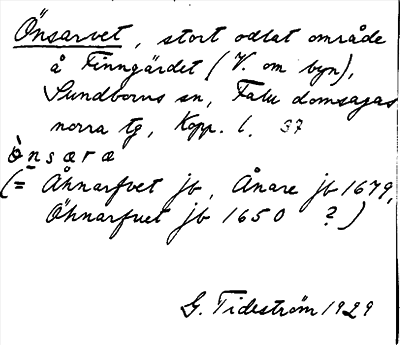 Önsarvet, stort odlat område
å Finngärdet (V. om byn),
Sundborns sn, Falu domsagas
norra tg, Kopp. l. 37
ò̀nsæræ
(= Åhnarfvet jb, Ånare jb 1679,
Öhnarfuet jb 1650 ?)
G. Tideström 1929